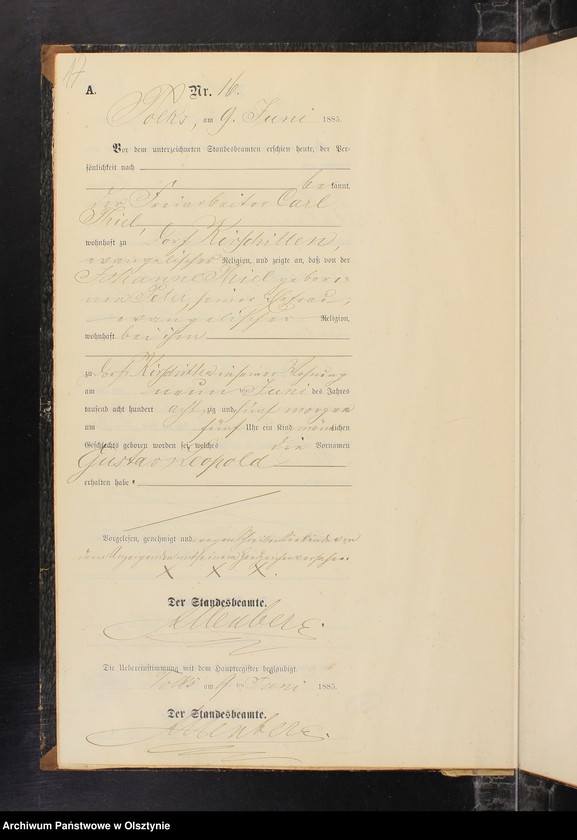 17
A.
Nr. 16.
Tolks, am 9. Juni 1885.
Vor dem unterzeichneten Standesbeamten erschien heute, der Per-
sönlichkeit nach
be kannt,
der Freiarbeiter Carl
Thiel,
wohnhaft zu Dorf Kirschitten,
evangelischer Religion, und zeigte an, daß von der
Johanne Thiel gebore-
nen seiner Ehefrau,
evangelischer Religion,
wohnhaft bei ihm
zu Dorf Kirschitten in seiner Wohnung
am neun ten Juni des Jahres
tausend acht hundert acht zig und fünf morgens
um fünf Uhr ein Kind männlichen
Geschlechts geboren worden sei, welches die Vornamen
Gustav Leopold
erhalten habe
Vorgelesen, genehmigt und wegen Schreibensunkunde von
dem Anzeigenden mit seinem Handzeichen versehen.
X X X.
Der Standesbeamte.
Die Uebereinstimmung mit dem Hauptregister beglaubigt
Tolks am 9 ten Juni 1885.
Der Standesbeamte.
Archiwum Państwowe w Olsztynie